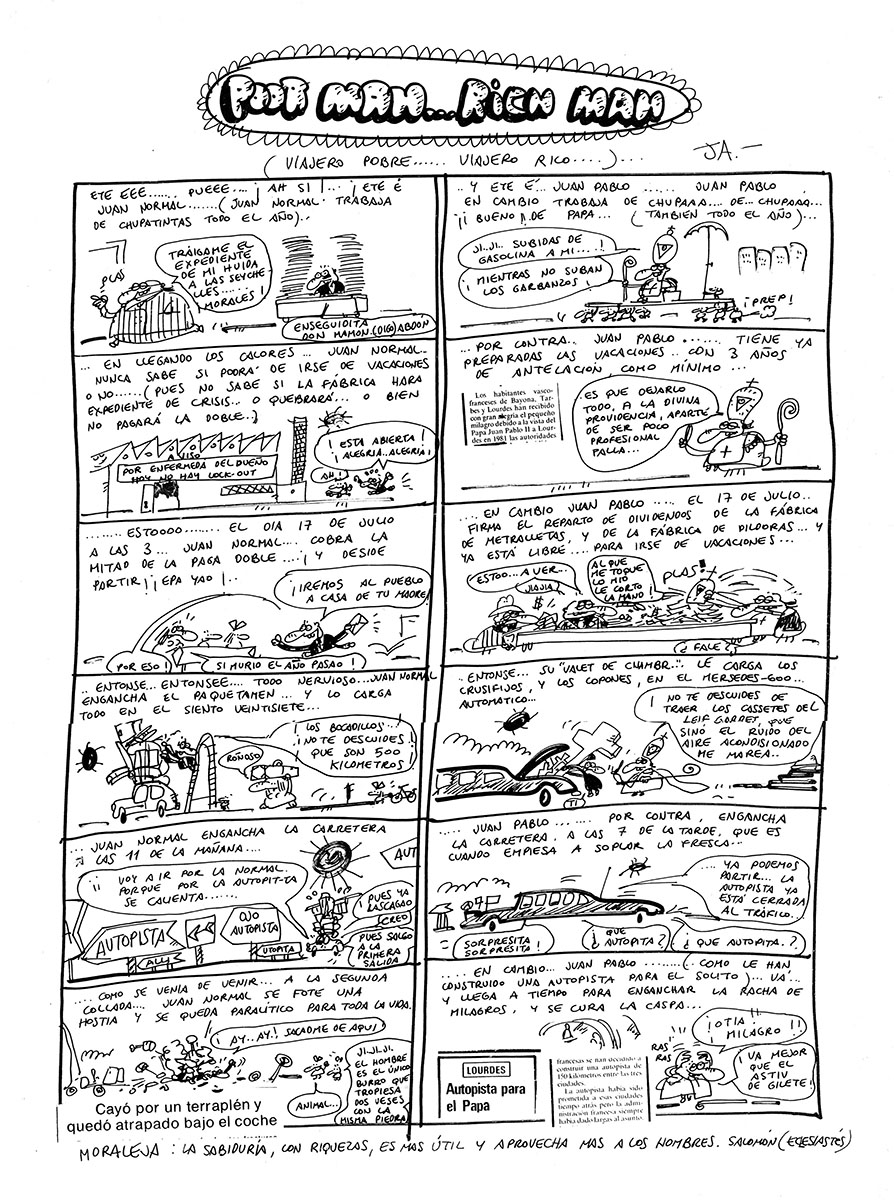 POOT MAN...RICH MAN
(VIAJERO POBRE...... VIAJERO RICO....)...
JA.-
ETE ÉEE...... PUEEE.... ¡AH SI!... ¡ETE É
JUAN NORMAL.......(JUAN NORMAL TRABAJA
DE CHUPATINTAS TODO EL AÑO)..
PLAS
TRÁIGAME EL
EXPEDIENTE
DE MI HUIDA
A LAS SEYCHE
LLES......
MORALES!
ENSEGUIDITA
DON MAMON.(DIGO)ABDON
.. Y ETE É... JUAN PABLO ...... JUAN PABLO,
EN CAMBIO TRABAJA DE CHUPAAA.... DE... CHUPAAA...
¡¡BUENO!! DE PAPA... (TAMBIEN TODO EL AÑO)...
JI..JI.. SUBIDAS DE
GASOLINA A MI.....!
¡MIENTRAS NO SUBAN
LOS GARBANZOS!
¡PREP!
... EN LLEGANDO LOS CALORES... JUAN NORMAL..
NUNCA SABE SI PODRA' DE IRSE DE VACACIONES
O NO.....(PUES NO SABE SI LA FÁBRICA HARA
EXPEDIENTE DE CRISIS... O QUEBRARÁ... O BIEN
NO PAGARÁ LA DOBLE..)
AVISO
POR ENFERMEDA DEL DUEÑO
HOY NO HAY LOCK-OUT
AH!
¡ESTA ABIERTA!
¡ALEGRIA..ALEGRIA!
...POR CONTRA.. JUAN PABLO ....... TIENE YA
PREPARADAS LAS VACACIONES.. CON 3 AÑOS
DE ANTELACION, COMO MÍNIMO ...
Los habitantes vasco-
franceses de Bayona, Tar-
bes y Lourdes han recibido
con gran alegría el pequeño
milagro debido a la vista del
Papa Juan Pablo II a Lour-
des en 1981 las autoridades
ES QUE DEJARLO
TODO, A LA DIVINA
PROVIDENCIA, APARTE
DE SER POCO
PROFESIONAL
PALLA...
....... ESTOOOO........ EL DIA 17 DE JULIO
A LAS 3... JUAN NORMAL.... COBRA LA
MITAD DE LA PAGA DOBLE....¡Y DESIDE
PARTIR!¡EPA YAO!..
¡IREMOS AL PUEBLO
A CASA DE TU MADRE!
POR ESO!
SI MURIO EL AÑO PASAO!
....EN CAMBIO JUAN PABLO .... EL 17 DE JULIO..
FIRMA EL REPARTO DE DIVIDENDOS DE LA FÁBRICA
DE METRALLETAS, Y DE LA FÁBRICA DE PILDORAS... Y
YA ESTÁ LIBRE.... PARA IRSE DE VACACIONES...
ESTOO...A VER..
JIAJIA
AL QUE
ME TOQUE
LO MIO
LE CORTO
LA MANO!
PLAS!
$
¿FALE?
.. ENTONSE... ENTONSEE.... TODO NERVIOSO...JUAN NORMAL
ENGANCHA EL PAQUETAMEN... Y LO CARGA
TODO EN EL SIENTO VEINTISIETE...
ROÑOSO
¡LOS BOCADILLOS..!
¡NO TE DESCUIDES!
QUE SON 500
KILOMETROS!
..ENTONSE... SU "VALET DE CHAMBR.". LE CARGA LOS
CRUSIFIJOS, Y LOS COPONES, EN EL MERSEDES-600...
AUTOMATICO...
¡NO TE DESCUIDES DE
TRAER LOS CASSETES DEL
LEIF GORDET, QUE
SINÓ EL RUIDO DEL
AIRE ACONDISIONADO
ME MAREA..
TI
.... JUAN NORMAL ENGANCHA LA CARRETERA
A LAS 11 DE LA MAÑANA....
¡¡ VOY A IR POR LA NORMAL.
PORQUE POR LA AUTOPIT-TA
SE CALIENTA.......
AUT
AUTOPISTA
ALLI
OJO
AUTOPISTA
UTOPITA
¡PUES YA
RASCAGAO
CREO!
PUES SALGO
A LA
PRIMERA
SALIDA!
..... JUAN PABLO ..... POR CONTRA, ENGANCHA
LA CARRETERA. A LAS 7 DE LA TARDE, QUE ES
CUANDO EMPIESA A SOPLAR LA FRESCA...
....YA PODEMOS
PARTIR... LA
AUTOPISTA YA
ESTÁ CERRADA
AL TRÁFICO..
SORPRESITA
SORPRESITA!
¿QUE
AUTOPITA?
¿QUE AUTOPITA.?
.... COMO SE VENIA DE VENIR... A LA SEGUNDA
COLLADA... JUAN NORMAL SE FOTE UNA
HOSTIA Y SE QUEDA PARALITICO PARA TODA LA VIDA.
¡AY...AY! SACADME DE AQUI!
ANIMAL..
JI..JI..JI.
EL HOMBRE
ES EL ÚNICO
BURRO QUE
TROPIESA
DOS VESES
CON LA
MISMA PIEDRA!
Cayó por un terraplén y
quedó atrapado bajo el coche
.... EN CAMBIO... JUAN PABLO ......(COMO LE HAN
CONSTRUIDO UNA AUTOPISTA PARA EL SOLITO).. VA..
Y LLEGA A TIEMPO PARA ENGANCHAR LA RACHA DE
MILAGROS, Y SE CURA LA CASPA...
LOURDES
Autopista para
el Papa
francesas se han decidido a
construir una autopista de
150 kilómetros entre las tres
ciudades.
La autopista había sido
prometida a esas ciudades
tiempo atrás pero la admi-
nistración francesa siempre
había dado largas al asunto.
RAS
RAS
¡OTIA!
¡MILAGRO!!
¡VA MEJOR
QUE EL
ASTIV
DE GILETE!
MORALEJA: LA SABIDURÍA, CON RIQUEZAS, ES MAS ÚTIL Y APROVECHA MAS A LOS HOMBRES. SALOMÓN (ECLESIASTÉS)